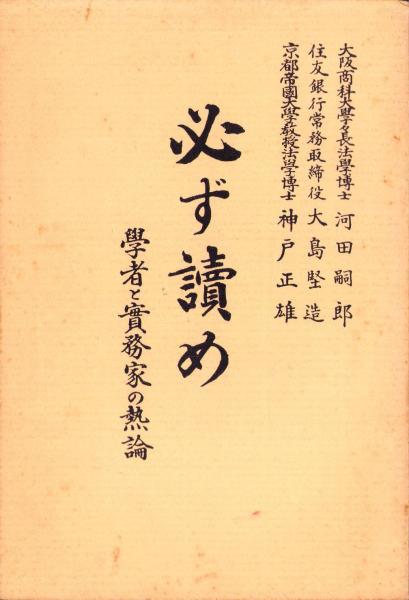 大阪商科大學々長法學博士 河田嗣郎
住友銀行常務取締役 大島堅造
京都帝國大學教授法學博士 神戸正雄
必ず讀め
學者と實務家の熱論